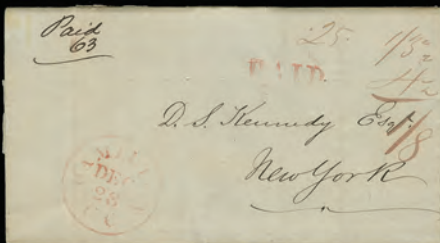 Paid
63
25
1/3½
4½
PAID
1/8
D. S. Kennedy Esqr.
New York
DEC
23